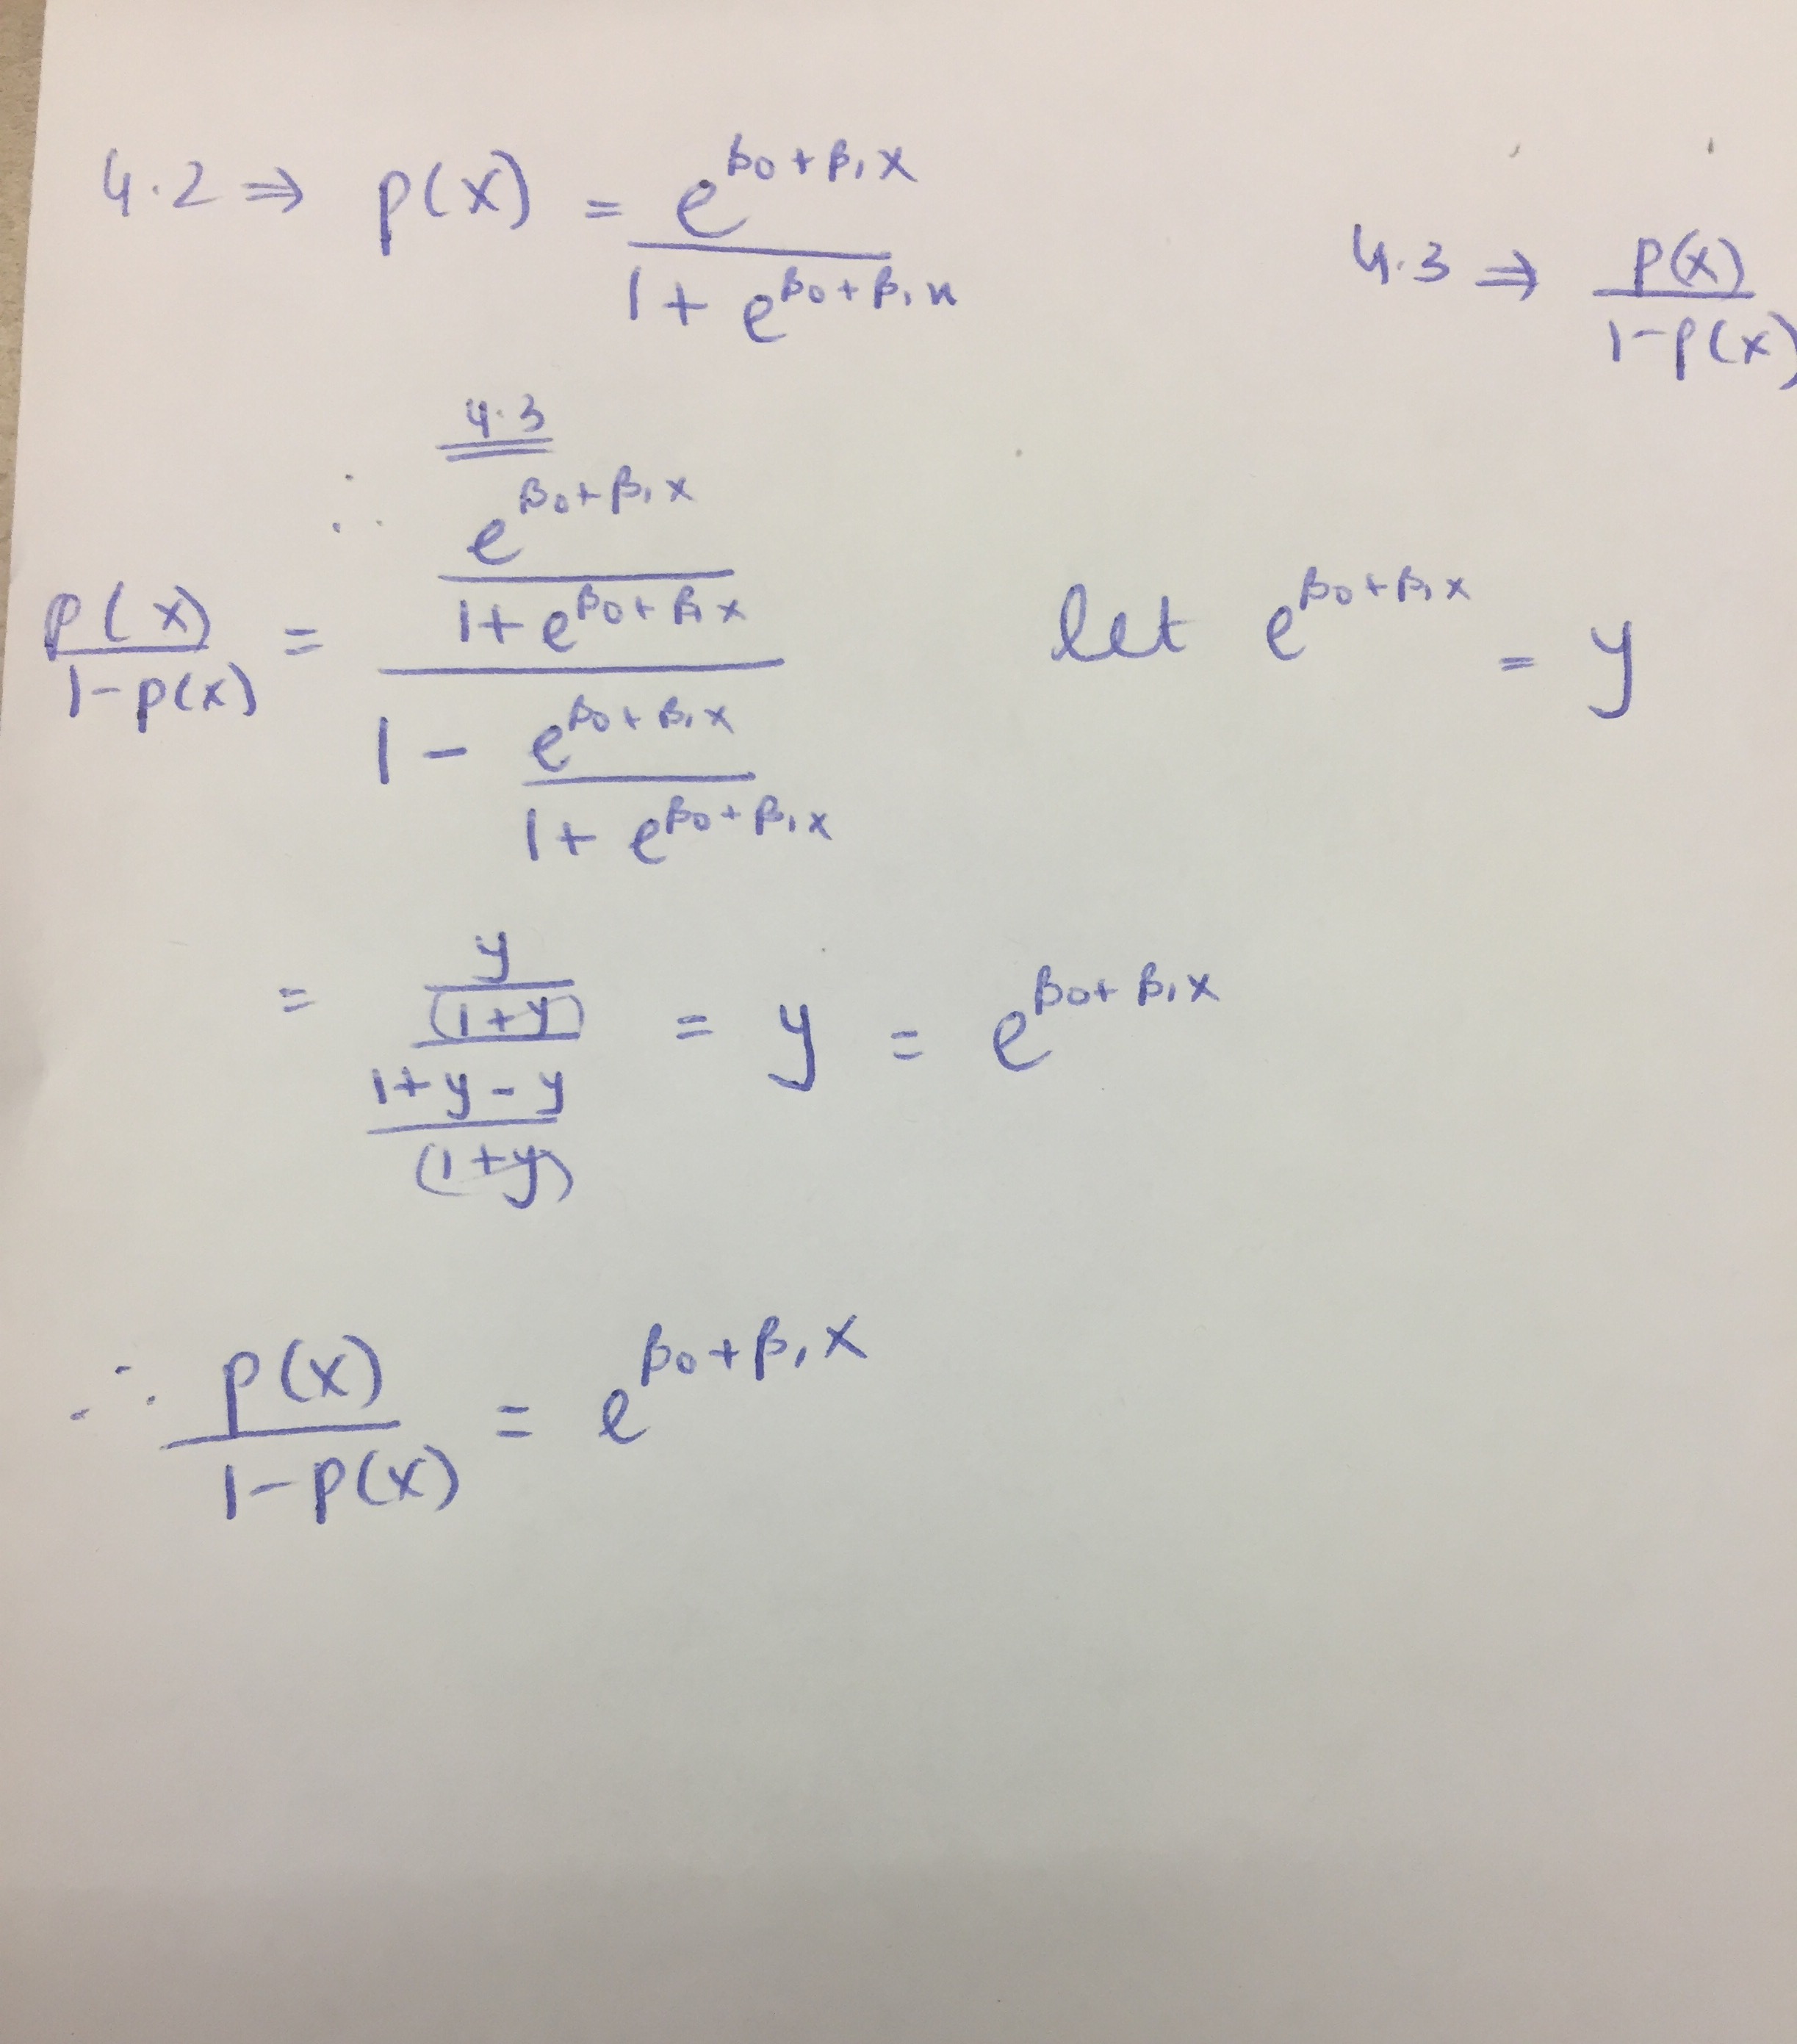 4.2 ⇒ p(x) = e^(β0+β1x) / (1 + e^(β0+β1x))
4.3 ⇒ p(x) / (1-p(x))
4.3
∴ p(x) / (1-p(x)) = (e^(β0+β1x) / (1+e^(β0+β1x))) / (1 - e^(β0+β1x) / (1+e^(β0+β1x)))
let e^(β0+β1x) = y
= (y / (1+y)) / ((1+y-y) / (1+y)) = y = e^(β0+β1x)
∴ p(x) / (1-p(x)) = e^(β0+β1x)